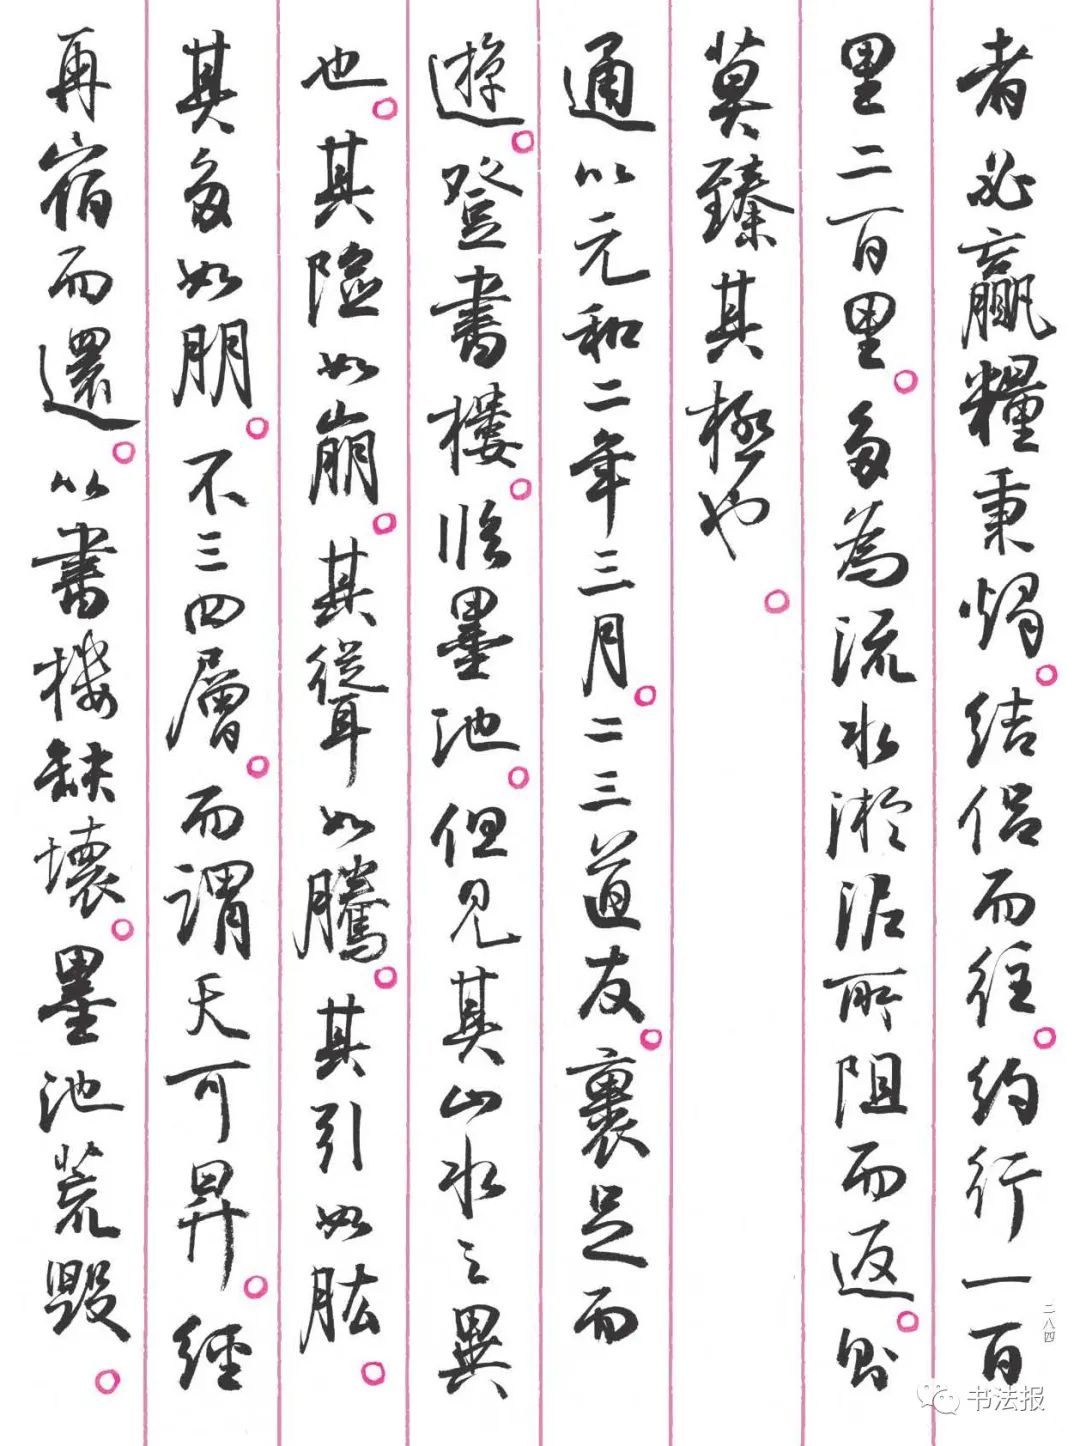 者必贏糧秉燭。結侶而往。約行一百
里二百里。多為流水淤泥所阻而返。則
莫臻其極也。
通以元和二年三月。二三道友。裹足而
遊。登書樓。臨墨池。但見其山水之異
也。其險如崩。其聳如騰。其引如肱。
其多如朋。不三四層。而謂天可昇。經
再宿而還。以書樓缺壞。墨池荒毀。
二八四
书法报